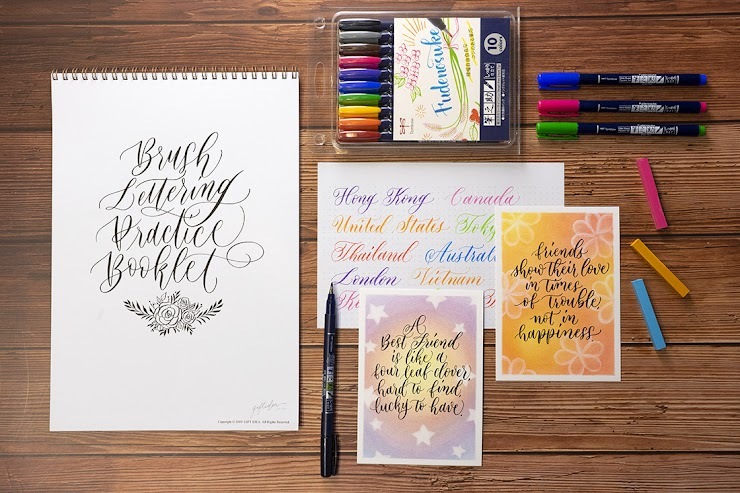 Brush
Lettering
Practice
Booklet
Copyright © 2019 GIFT IDEA. All Rights Reserved.
10
Fudenosuke
Tombow
Hong Kong Canada
United States Toky
Thailand Austral
London Vietnam
A
Best Friend
is like a
four leaf clover,
hard to find,
lucky to have.
friends
show their love
in times
of trouble,
not in
happiness.